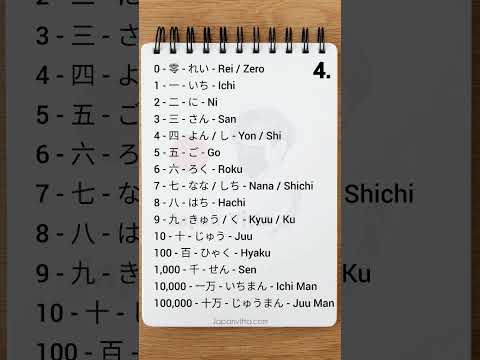 4.
0 - 零 - れい - Rei / Zero
1 - 一 - いち - Ichi
2 - 二 - に - Ni
3 - 三 - さん - San
4 - 四 - よん / し - Yon / Shi
5 - 五 - ご - Go
6 - 六 - ろく - Roku
7 - 七 - なな / しち - Nana / Shichi
8 - 八 - はち - Hachi
9 - 九 - きゅう / く - Kyuu / Ku
10 - 十 - じゅう - Juu
100 - 百 - ひゃく - Hyaku
1,000 - 千 - せん - Sen
10,000 - 一万 - いちまん - Ichi Man
100,000 - 十万 - じゅうまん - Juu Man
Japanvitta.com
3 - 三 - さ
4 - 四 - よ
5 - 五 - ご
6 - 六 - ろ
7 - 七 - な
8 - 八 - は
9 - 九 - き
10 - 十 -
100 - 百
Shichi
Ku